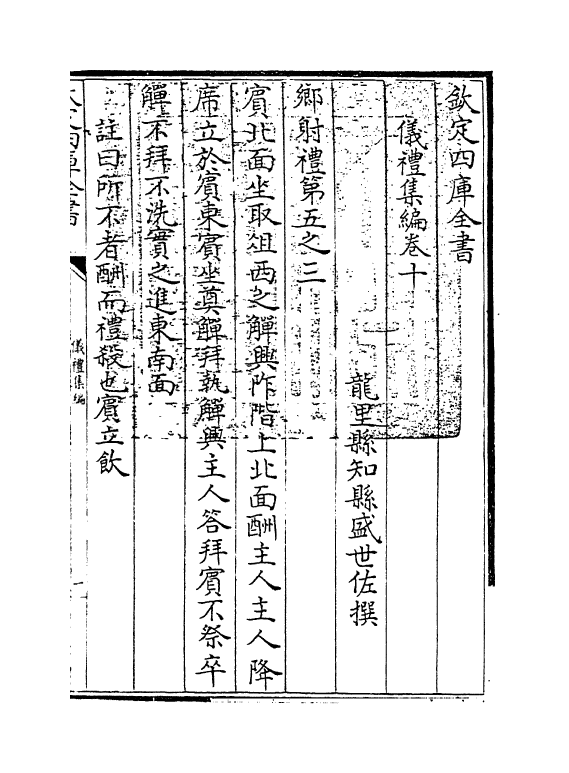 欽定四庫全書
儀禮集編卷十
龍里縣知縣盛世佐撰
鄉射禮第五之三
賓北面坐取俎西之觶興阼階上北面酬主人主人降
席立於賓東賓坐奠觶拜執觶興主人答拜賓不祭卒
觶不拜不洗實之進東南面
註曰所不者酬而禮殺也賓立飲
儀禮集編